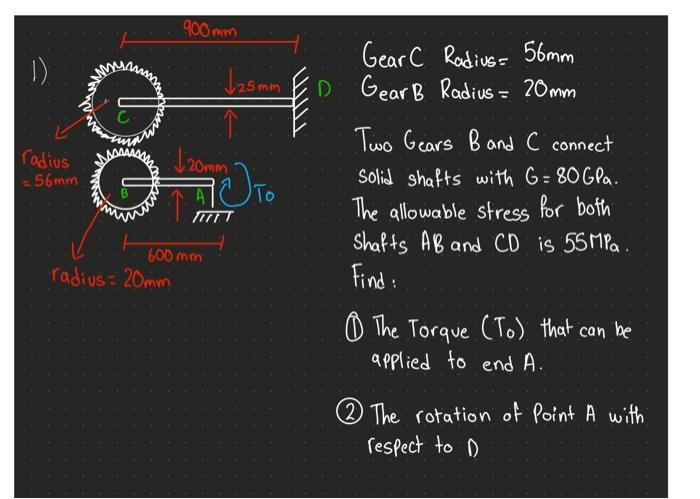 1)
900mm
25mm
C
D
radius
=56mm
20mm
B
A
To
600 mm
radius= 20mm
Gear C Radius= 56mm
Gear B Radius= 20mm
Two Gears B and C connect
solid shafts with G= 80GPa.
The allowable stress for both
shafts AB and CD is 55MPa.
Find:
① The Torque (To) that can be
applied to end A.
② The rotation of Point A with
respect to D